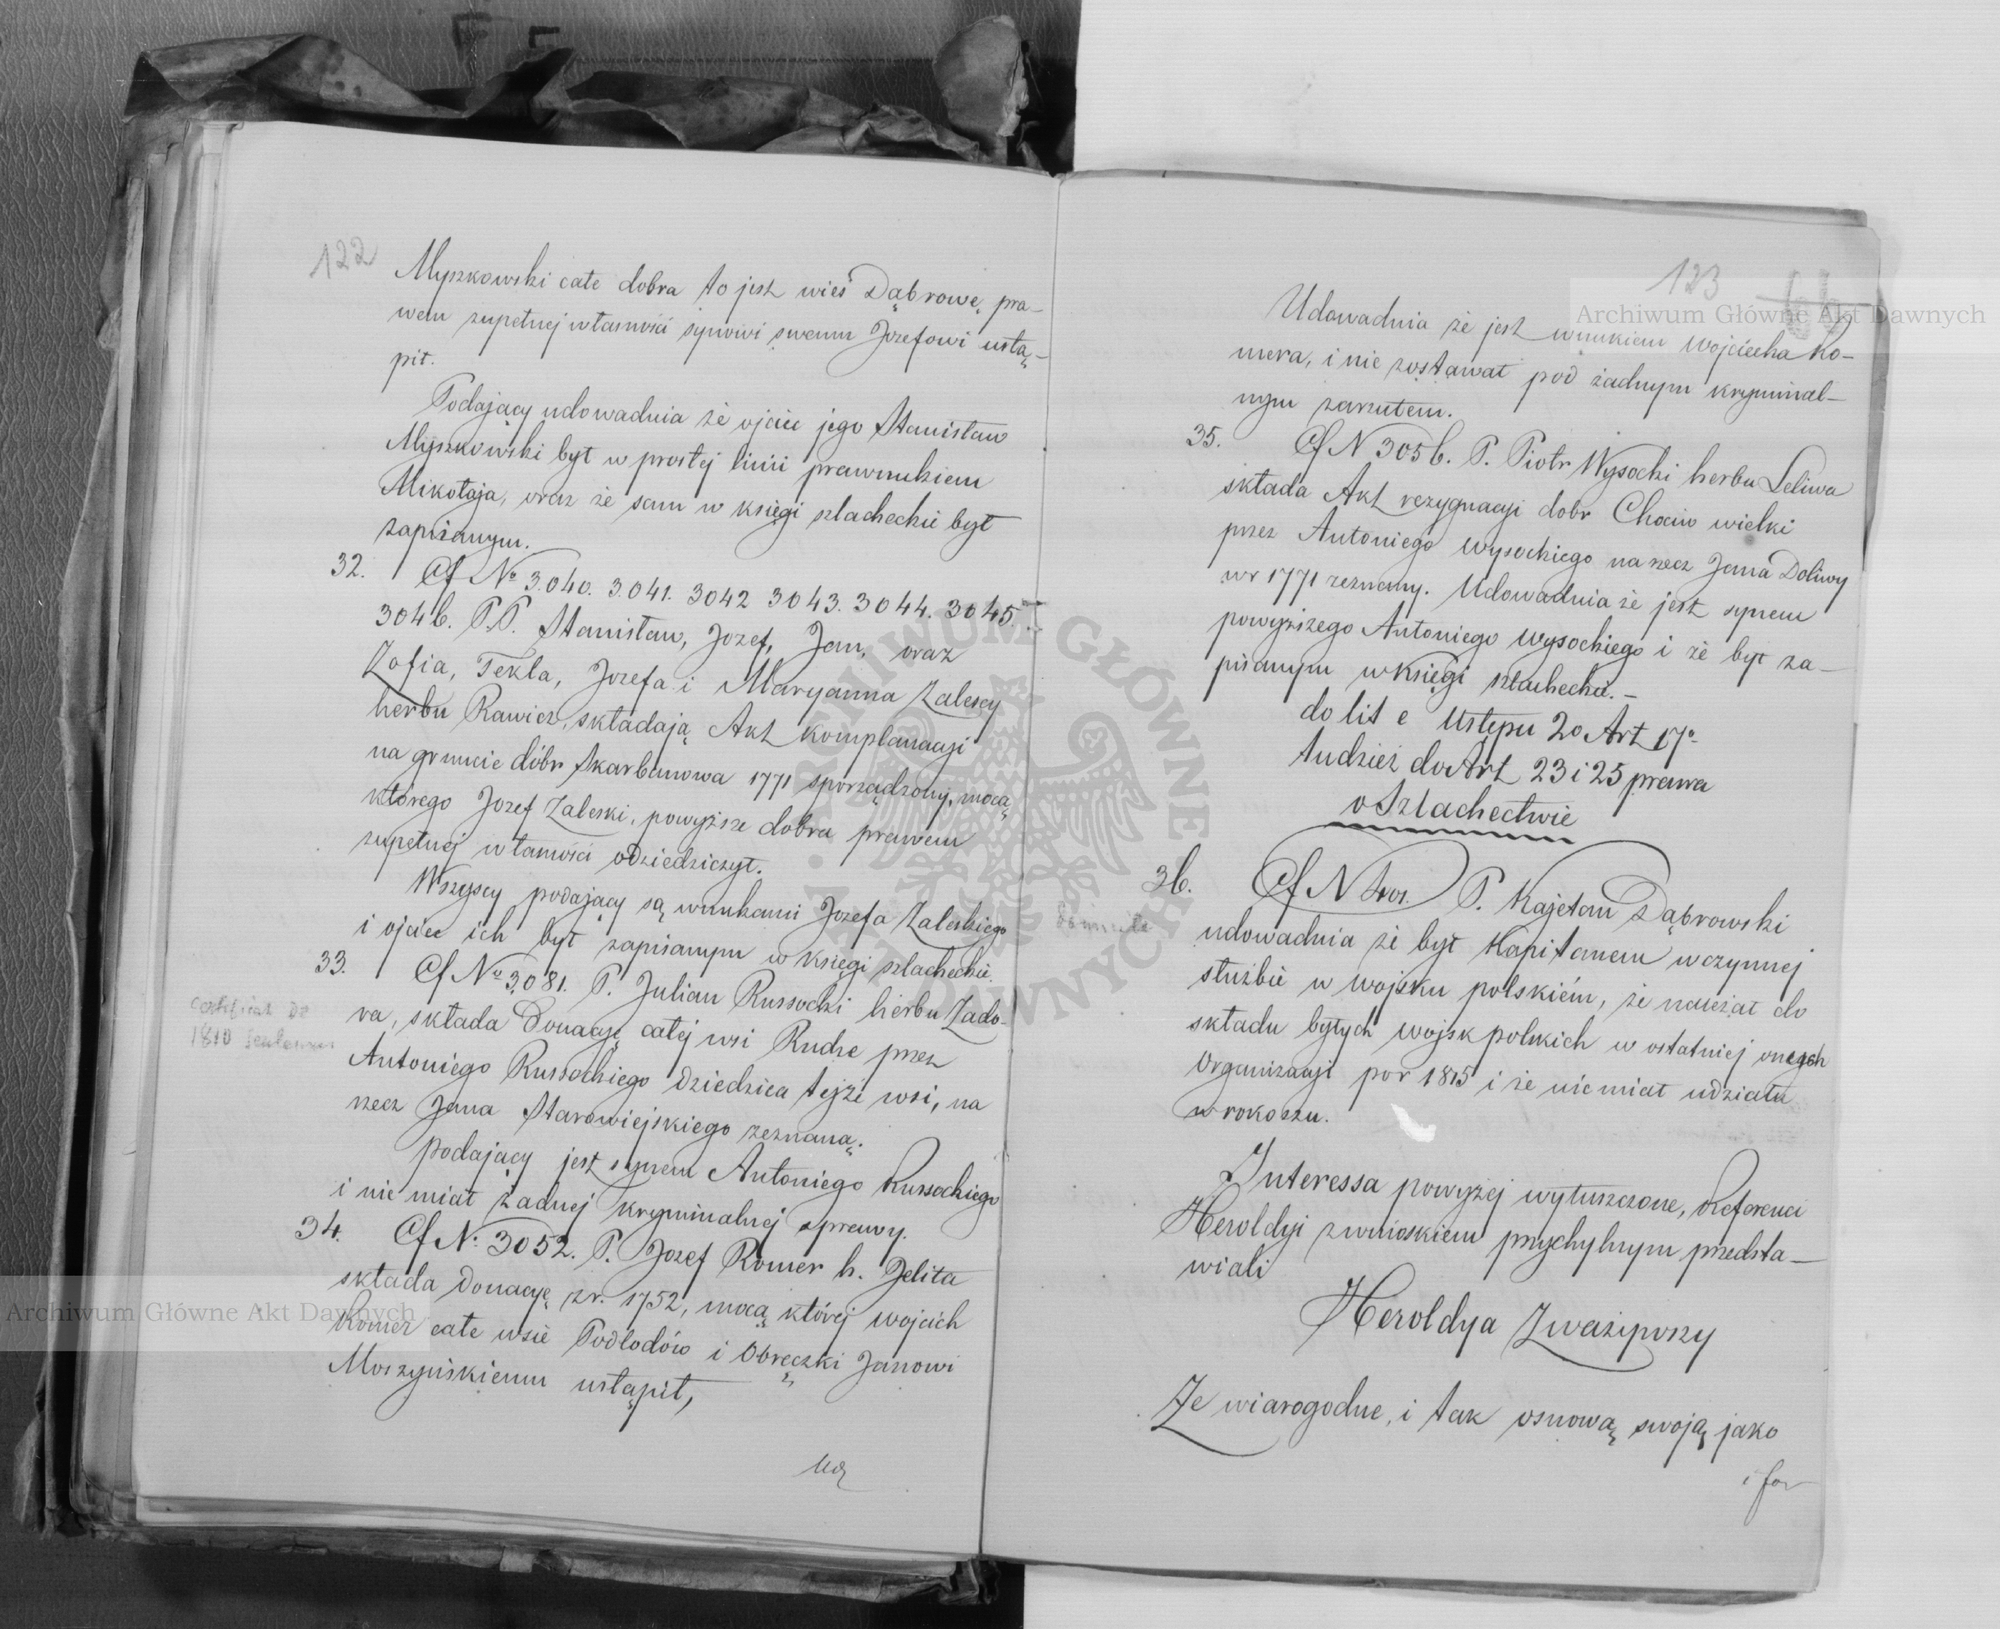 122
Myszkowski całe dobra to jest wieś Dąbrowę pra-
wem zupełnej własności synowi swemu Jozefowi ustą-
pił.
Podający udowadnia że ojciec jego Stanisław
Myszkowski był w prostej linii prawnukiem
Mikołaja, oraz że sam w księgi szlacheckie był
zapisanym.
32. Cf Nº 3040. 3041. 3042 3043. 3044. 3045.
3046. P.P. Stanisław, Jozef, Jan, oraz
Zofia, Tekla, Jozefa i Maryanna Zalescy
herbu Rawicz, składają Akt komplanacyi
na gruncie dóbr Skarbanowa 1771 sporządzony, mocą
którego Jozef Zaleski, powyższe dobra prawem
zupełnej własności odziedziczył.
Wszyscy podający są wnukami Jozefa Zaleskiego
i ojciec ich był zapisanym w księgi szlacheckie.
33. Cf Nº 3081. P. Julian Russocki herbu Zado-
ra, składa Donacyę całej wsi Rudze przez
Antoniego Russockiego dziedzica tejże wsi, na
rzecz Jana Starowiejskiego zeznaną.
podający jest synem Antoniego Russockiego
i nie miał żadnej kryminalnej sprawy.
34. Cf N. 3052. P. Jozef Romer h. Jelita
składa Donacyę z r. 1752, mocą której Wojciech
Romer całe wsie Podlodów i Obręczki Janowi
Moszyńskiemu ustąpił,
Ud
1810
123
Udowadnia że jest wnukiem Wojciecha Ro-
mera, i nie zostawał pod żadnym kryminal-
nym zarzutem.
35. Cf N 3056. P. Piotr Wysocki herbu Leliwa
składa Akt rezygnacyi dobr Chociw wielki
przez Antoniego Wysockiego na rzecz Jana Doliwy
w r 1771 zeznany. Udowadnia że jest synem
powyższego Antoniego Wysockiego i że był za-
pisanym w księgi szlachecki.-
do lit e Ustępu 2º Art 17º
tudzież do Art 23 i 25 prawa
o Szlachectwie
36. Cf N P. Kajetan Dąbrowski
udowadnia że był Kapitanem w czynnej
służbie w wojsku polskiém, że należał do
składu byłych wojsk polskich w ostatniej onegoż
Organizacyi po r 1815 i że nie miał udziału
w rokoszu.
Interessa powyżej wyłuszczone, Referenci
Heroldyi z wnioskiem przychylnym przedsta-
wiali
Heroldya Zważywszy
Że wiarogodne, i tak osnową swoją jako
i for
Archiwum Główne Akt Dawnych
Archiwum Główne Akt Dawnych
ARCHIWUM GŁÓWNE AKT DAWNYCH